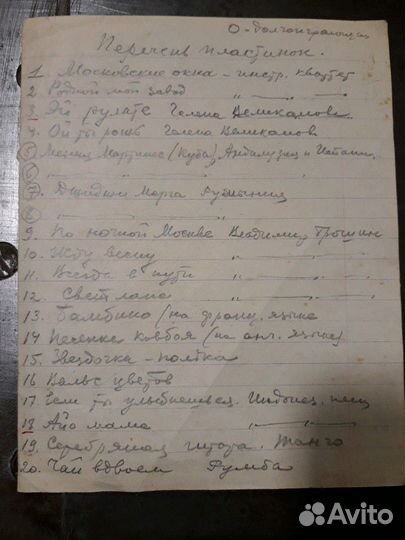 О - долгоиграющая
Перечень пластинок.
1. Московские окна - инстр. квартет
2 Родной мой завод " — " — "
3. Эй рулате Гелена Великанова
4. Ой ты рошь Гелена Великанова
5 Месиец Мартинес (Куба), Андалузия и Испани.
6 " — " — "
7. Джидзи Марга Румыния
8 " — " — "
9. По ночной Москве Владимир Трошин
10. Жду весну " — "
11. Всегда в пути " — "
12. Светлана " — "
13. Бамбино (на франц. языке
14 Песенка ковбоя (на анг. языке)
15. Звездочка - полька
16 Вальс цветов
17. Если ты улыбнешься. Индонез. песн
18 Айо мама " — "
19. Серебряная гитара. Танго
20. Чай вдвоем Румба
Avito